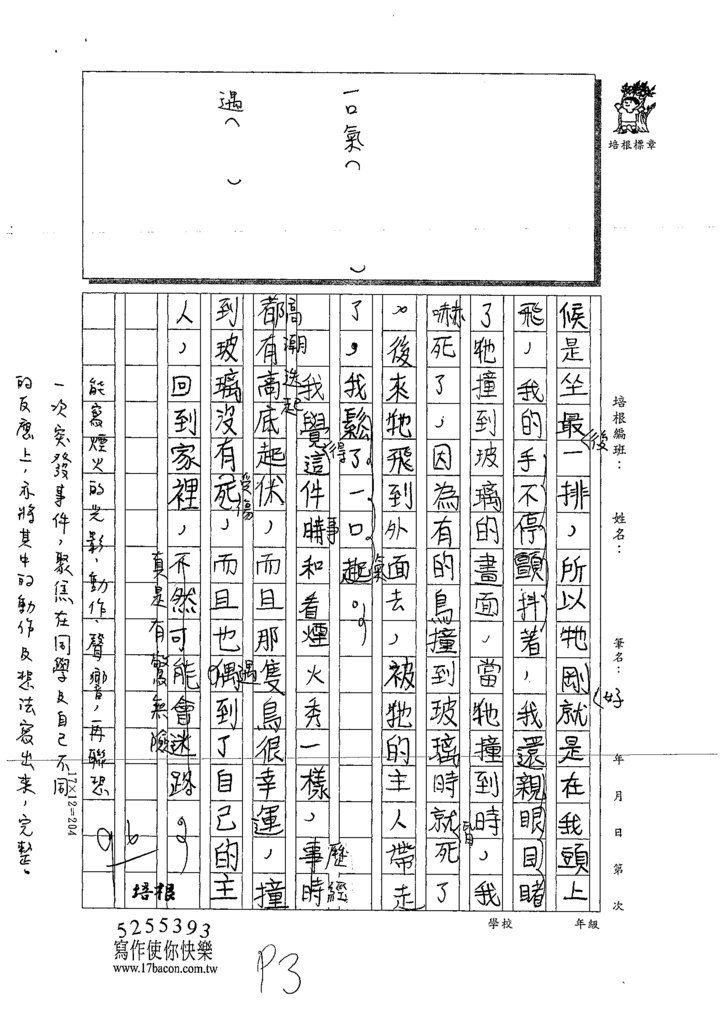 一口氣（　）
遇（　）
培根標章
培根編班：　姓名：　筆名：　年　月　日　第　次
學校　年級
候是坐最一排，所以牠剛就是在我頭上
後
好
飛，我的手不停顫抖著，我還親眼目睹
了牠撞到玻璃的畫面，當牠撞到時，我
嚇死了，因為有的鳥撞到玻璃時就死了
。後來牠飛到外面去，被牠的主人帶走
了，我鬆了一口趣。
氣
我覺這件時和看煙火秀一樣，事時
得
事
歷經
高潮迭起
都有高底起伏，而且那隻鳥很幸運，撞
到玻璃沒有死，而且也偶到了自己的主
受傷
遇
人，回到家裡，不然可能會迷路。
真是有驚無險
能寫煙火的光影、動作、聲響，再聯想
一次突發事件，聚焦在同學及自己不同
的反應上，亦將其中的動作及想法寫出來，完整。
17×12=204
96
培根
5255393
寫作使你快樂
www.17bacon.com.tw
P3